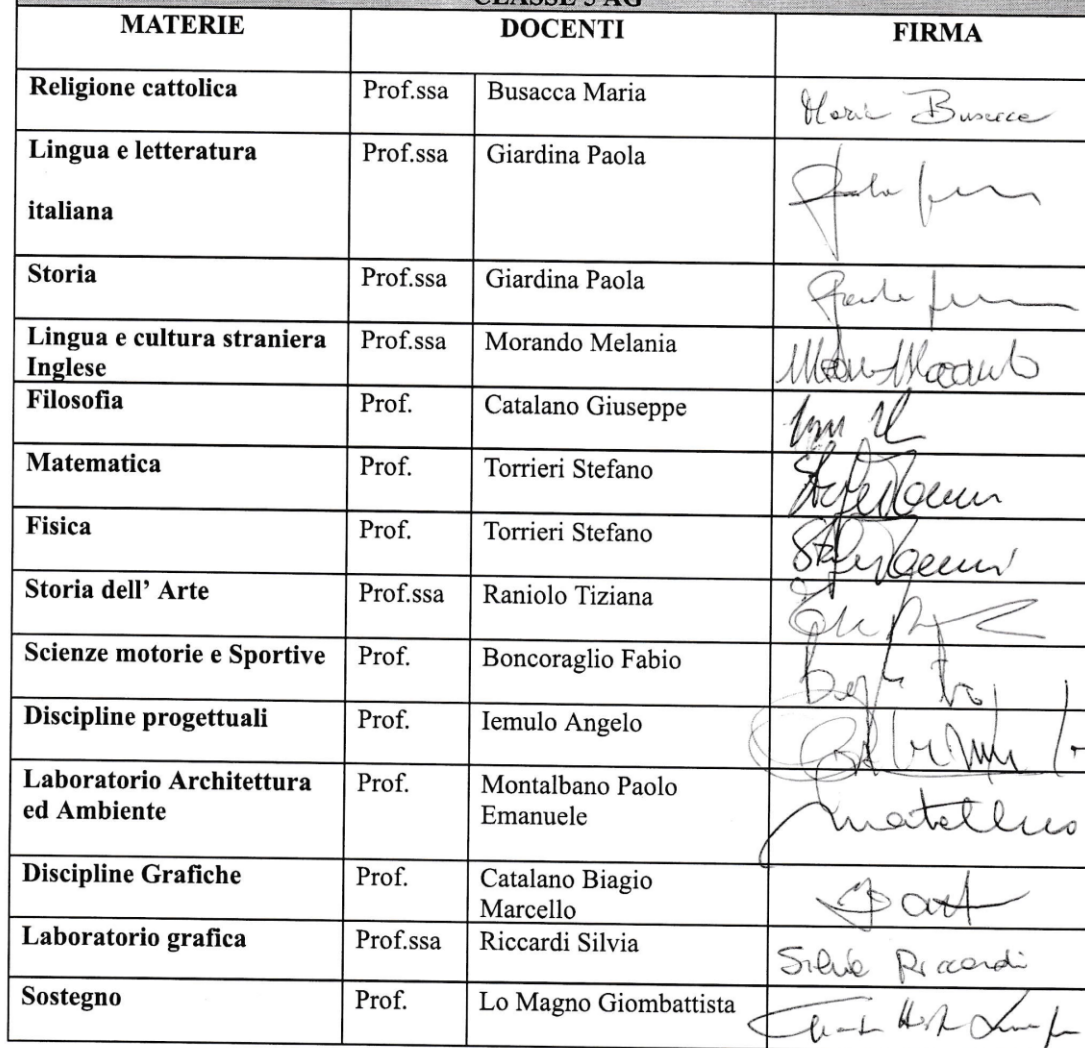 CLASSE 5 AG
MATERIE DOCENTI FIRMA
Religione cattolica Prof.ssa Busacca Maria Maria Busacca
Lingua e letteratura Prof.ssa Giardina Paola
italiana
Storia Prof.ssa Giardina Paola
Lingua e cultura straniera Prof.ssa Morando Melania
Inglese
Filosofia Prof. Catalano Giuseppe
Matematica Prof. Torrieri Stefano
Fisica Prof. Torrieri Stefano
Storia dell' Arte Prof.ssa Raniolo Tiziana
Scienze motorie e Sportive Prof. Boncoraglio Fabio
Discipline progettuali Prof. Iemulo Angelo
Laboratorio Architettura Prof. Montalbano Paolo
ed Ambiente Emanuele
Discipline Grafiche Prof. Catalano Biagio
Marcello
Laboratorio grafica Prof.ssa Riccardi Silvia Silvia Riccardi
Sostegno Prof. Lo Magno Giombattista